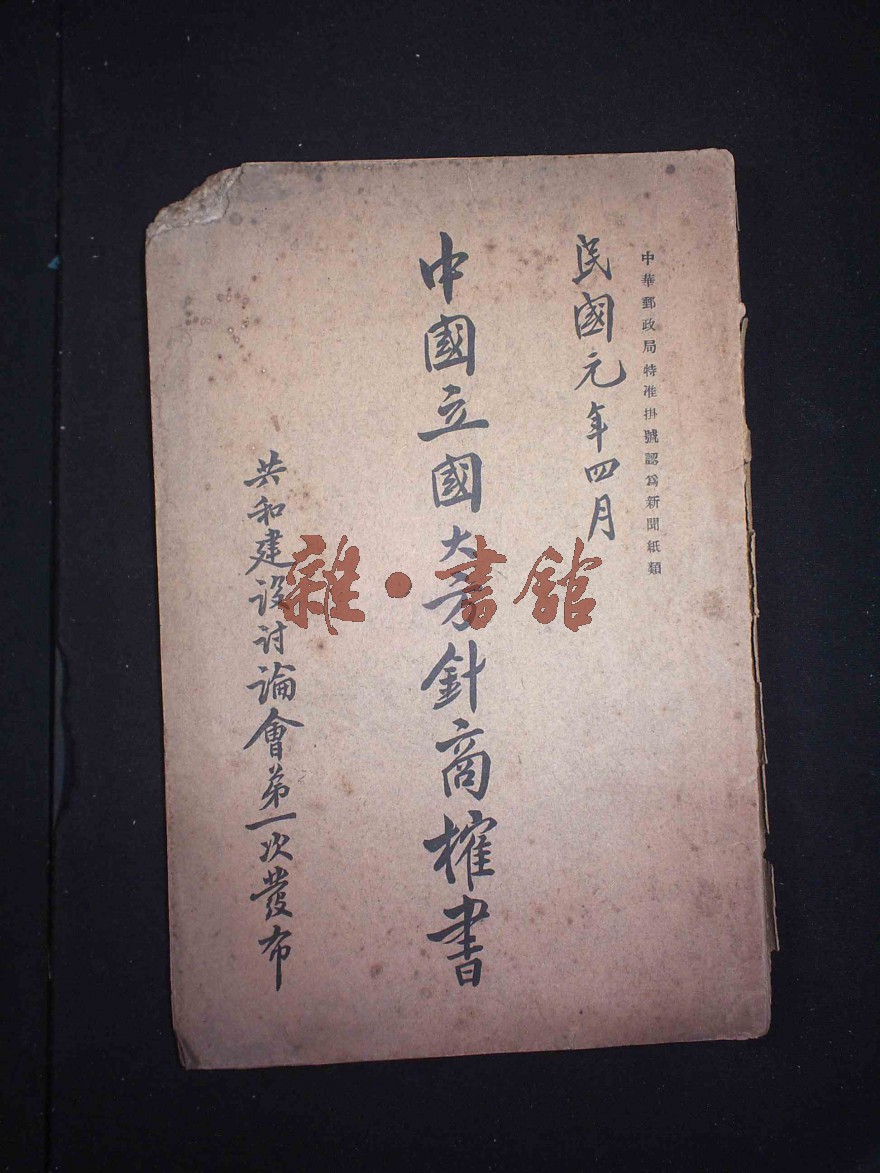 中華郵政局特准掛號認爲新聞紙類
民國元年四月
中國立國大方針商榷書
共和建設討論會第一次發布
雜·書館